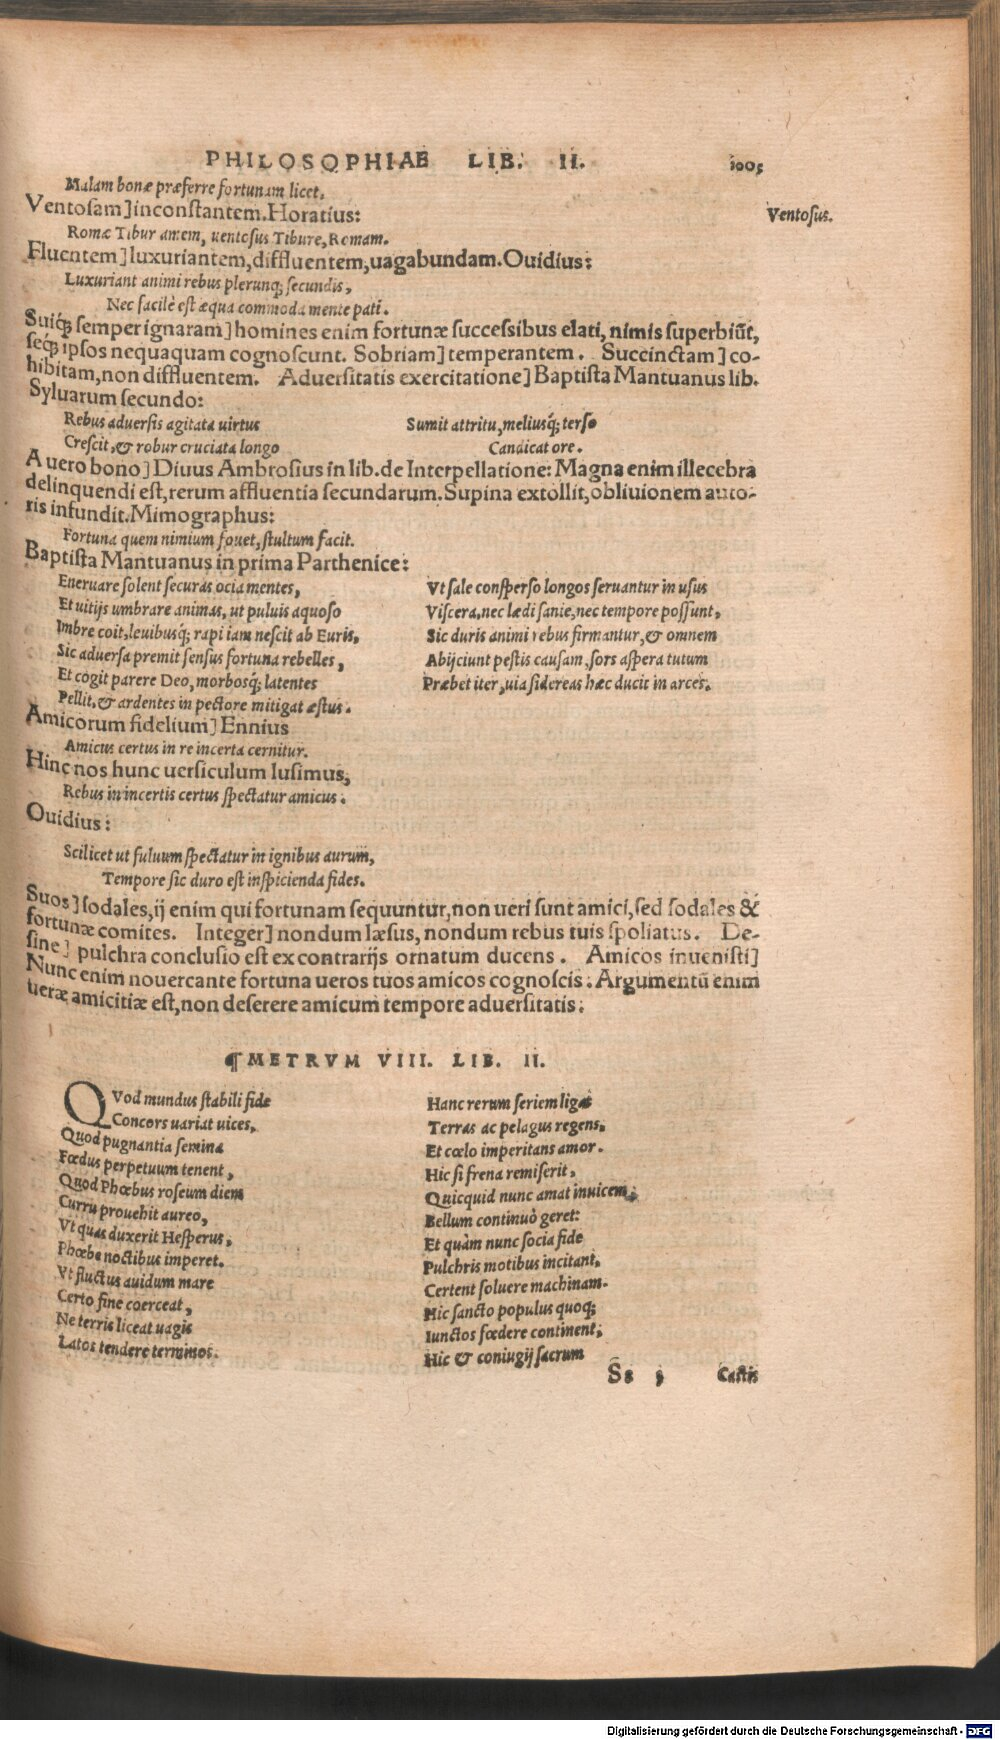 PHILOSOPHIAE LIB. II. 1005
Malam bonæ præferre fortunam licet.
Ventosam] inconstantem. Horatius:
Ventosus.
Romæ Tibur amem, uentosus Tibure, Romam.
Fluentem] luxuriantem, diffluentem, uagabundam. Ouidius:
Luxuriant animi rebus plerunq; secundis,
Nec facilè est æqua commoda mente pati.
Suiq́; semper ignaram] homines enim fortunæ successibus elati, nimis superbiūt,
seq́; ipsos nequaquam cognoscunt. Sobriam] temperantem. Succinctam] co-
hibitam, non diffluentem. Aduersitatis exercitatione] Baptista Mantuanus lib.
Syluarum secundo:
Rebus aduersis agitata uirtus
Crescit, & robur cruciata longo
Sumit attritu, meliusq́; terso
Candicat ore.
A uero bono] Diuus Ambrosius in lib. de Interpellatione: Magna enim illecebra
delinquendi est, rerum affluentia secundarum. Supina extollit, obliuionem auto-
ris infundit. Mimographus:
Fortuna quem nimium fouet, stultum facit.
Baptista Mantuanus in prima Parthenice:
Eneruare solent securas ocia mentes,
Et uitijs umbrare animas, ut puluis aquoso
Imbre coit, leuibusq́; rapi iam nescit ab Euris,
Sic aduersa premit sensus fortuna rebelles,
Et cogit parere Deo, morbosq́; latentes
Pellit, & ardentes in pectore mitigat æstus.
Vt sale consperso longos seruantur in usus
Viscera, nec lædi sanie, nec tempore possunt,
Sic duris animi rebus firmantur, & omnem
Abijciunt pestis causam, sors aspera tutum
Præbet iter, uia sidereas hæc ducit in arces.
Amicorum fidelium] Ennius
Amicus certus in re incerta cernitur.
Hinc nos hunc uersiculum lusimus,
Rebus in incertis certus spectatur amicus.
Ouidius:
Scilicet ut fuluum spectatur in ignibus aurum,
Tempore sic duro est inspicienda fides.
Suos] sodales, ij enim qui fortunam sequuntur, non ueri sunt amici, sed sodales &
fortunæ comites. Integer] nondum læsus, nondum rebus tuis spoliatus. De-
sine] pulchra conclusio est ex contrarijs ornatum ducens. Amicos inuenisti]
Nunc enim nouercante fortuna ueros tuos amicos cognoscis: Argumentū enim
ueræ amicitiæ est, non deserere amicum tempore aduersitatis.
¶ METRVM VIII. LIB. II.
QVod mundus stabili fide
Concors uariat uices,
Quod pugnantia semina
Fœdus perpetuum tenent,
Quod Phœbus roseum diem
Curru prouehit aureo,
Vt quas duxerit Hesperus,
Phœbe noctibus imperet.
Vt fluctus auidum mare
Certo fine coerceat,
Ne terris liceat uagis
Latos tendere terminos.
Hanc rerum seriem ligat
Terras ac pelagus regens,
Et cœlo imperitans amor.
Hic si frena remiserit,
Quicquid nunc amat inuicem,
Bellum continuò geret:
Et quàm nunc socia fide
Pulchris motibus incitant,
Certent soluere machinam.
Hic sancto populus quoq;
Iunctos fœdere continent;
Hic & coniugij sacrum
Ss 3 Castis
Digitalisierung gefördert durch die Deutsche Forschungsgemeinschaft - DFG